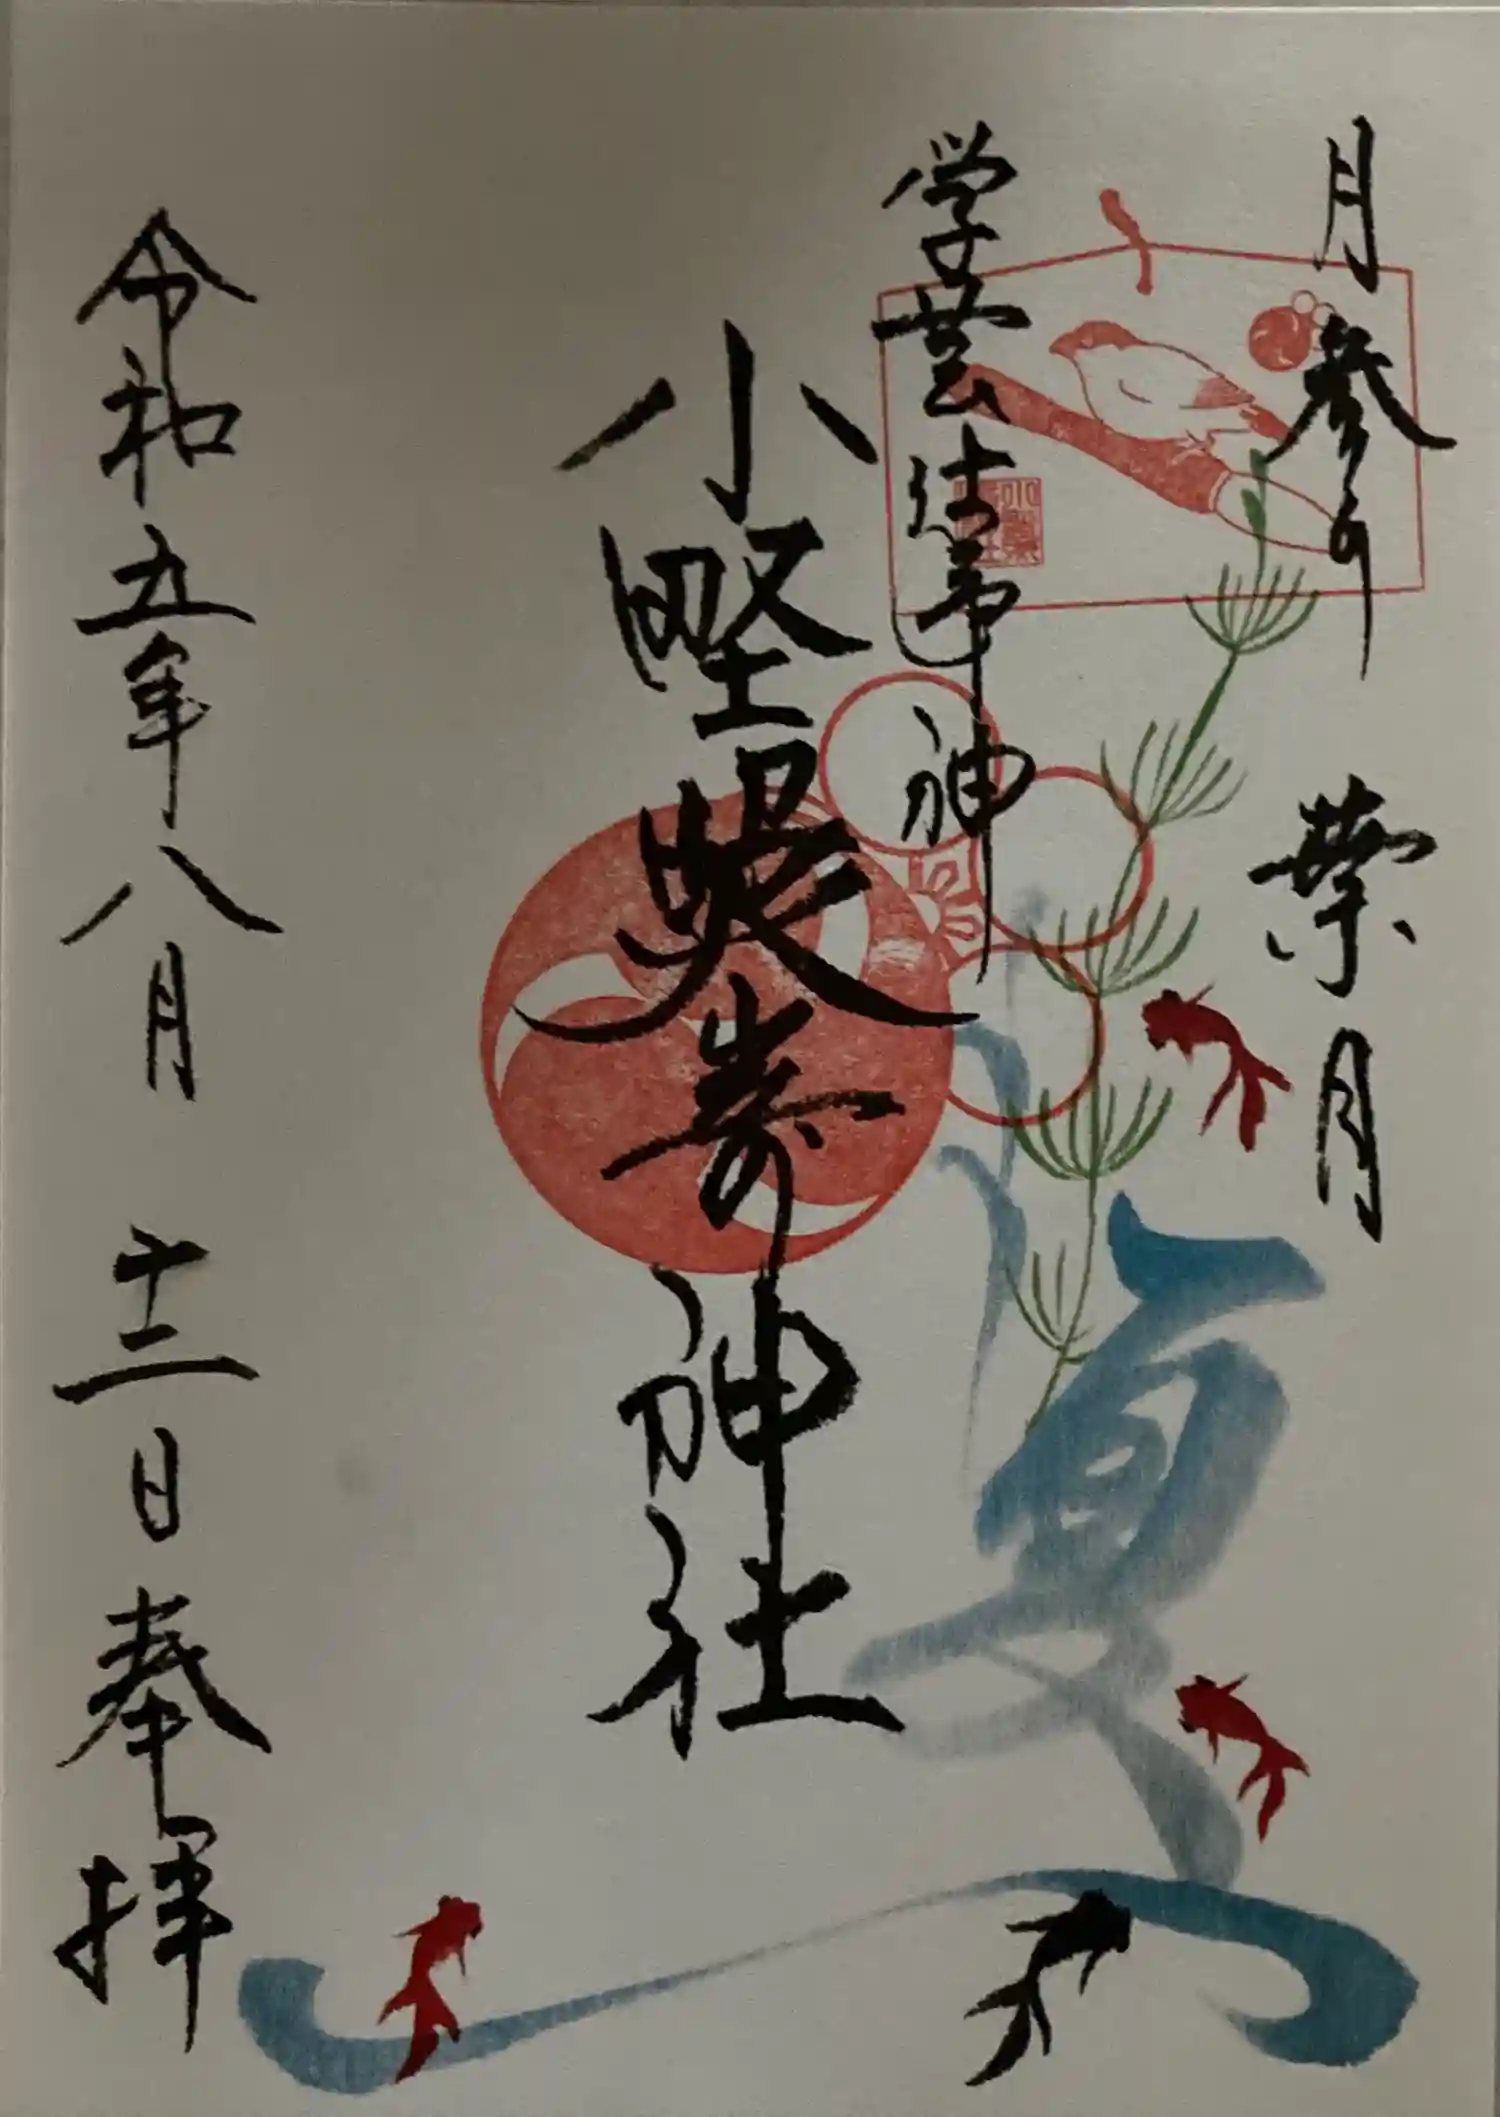 月参り 葉月
学芸仕事神
小野照崎神社
令和五年八月十二日奉拝
夏